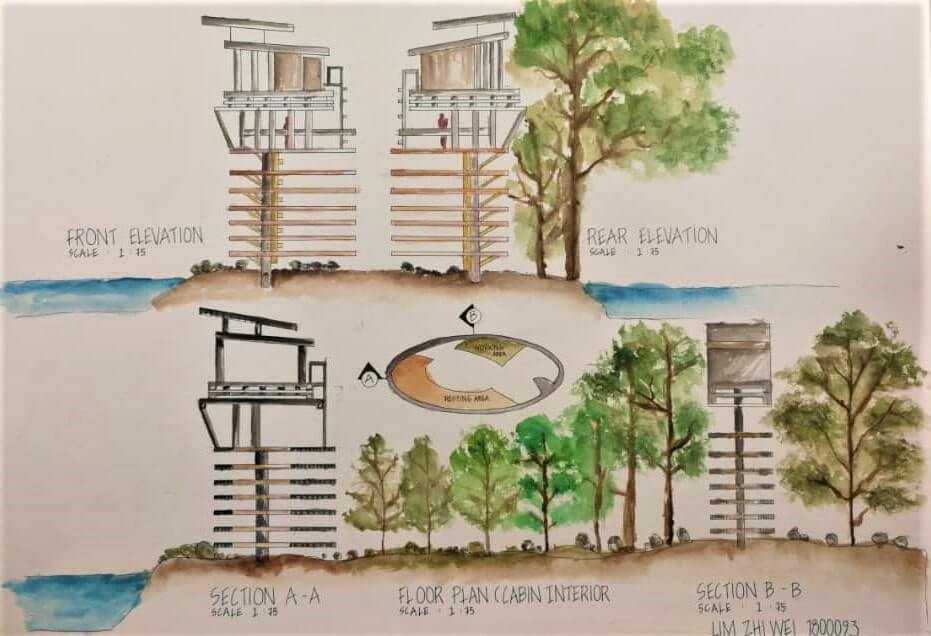 FRONT ELEVATION
SCALE : 1 : 75
REAR ELEVATION
SCALE : 1 : 75
B
A
WORKING
AREA
RESTING AREA
SECTION A - A
SCALE : 1 : 75
FLOOR PLAN (CABIN INTERIOR
SCALE : 1 : 75
SECTION B - B
SCALE : 1 : 75
LIM ZHI WEI 1800093